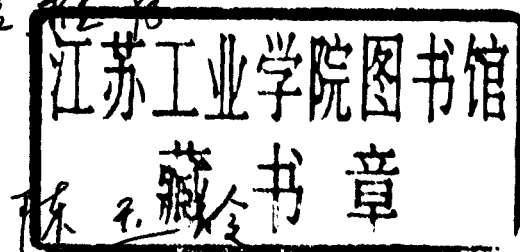 江苏工业学院图书馆
藏书章
陈